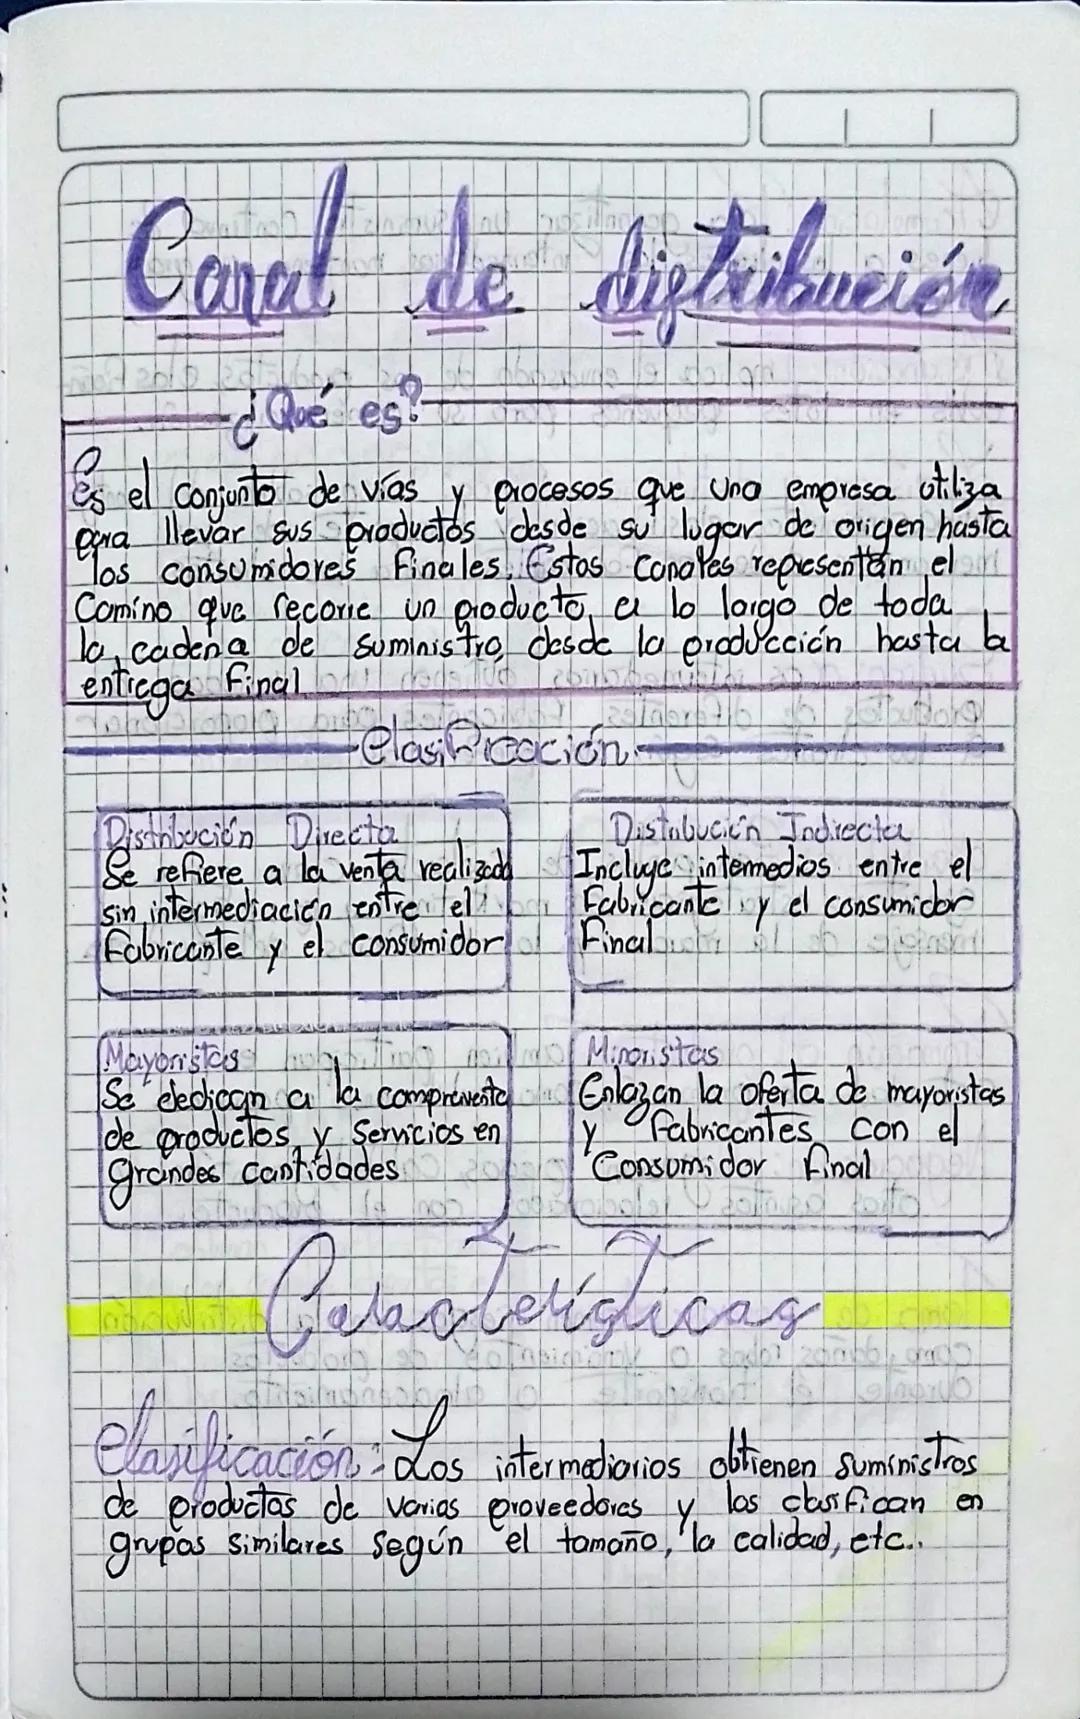 Canal de distribución
¿Qué es?
Es el conjunto de vías y procesos que una empresa utiliza
para llevar sus productos desde su lugar de origen hasta
los consumidores finales. Estos canales representan el
Camino que recorre un producto a lo largo de toda
la cadena de suministro, desde la producción hasta la
entrega final
Clasificación
Distribución Directa
Se refiere a la venta realizada
sin intermediación entre el
fabricante y el consumidor
Distribución Indirecta
Incluye intermedios entre el
fabricante y el consumidor
Final
Mayoristas
Se dedican a la compraventa
de productos y servicios en
grandes cantidades
Minoristas
Enlazan la oferta de mayoristas
y fabricantes con el
Consumidor final
Características
Clasificación: Los intermediarios obtienen suministros
de productos de varios proveedores y los clasifican en
grupos similares según el tamaño, la calidad, etc..